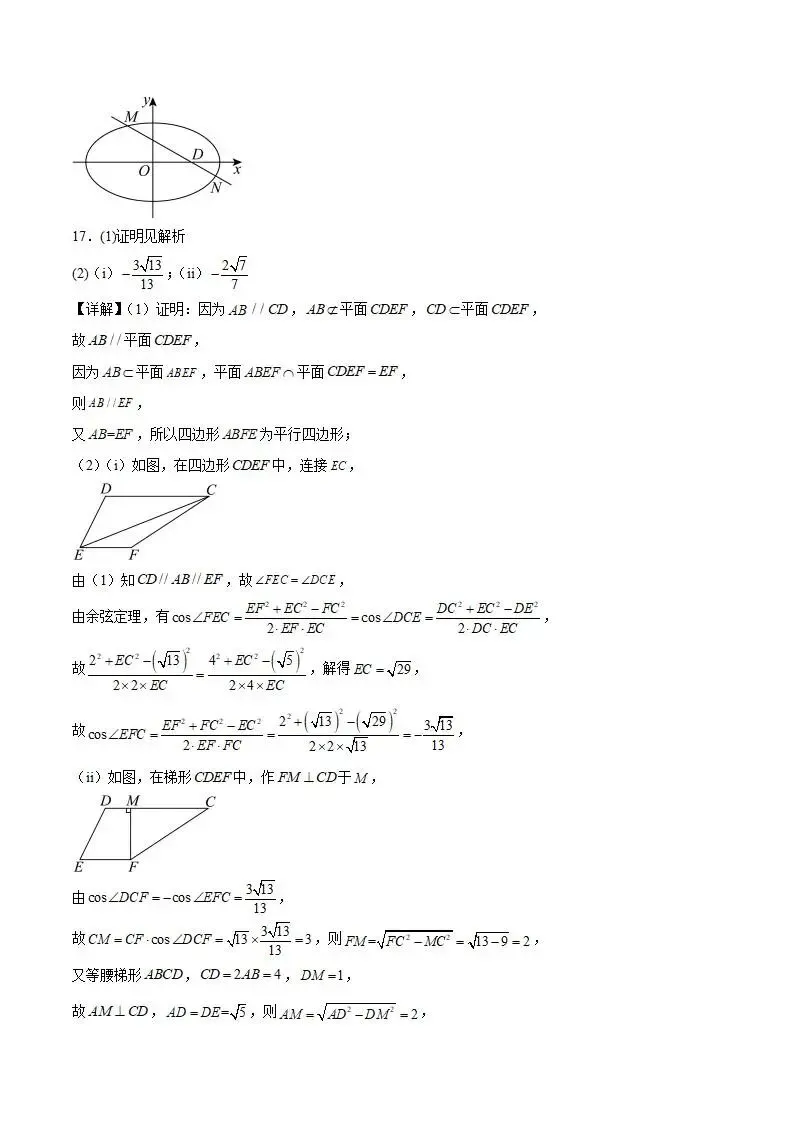 y
M
D
O
x
N
17．(1)证明见解析
(2)（i）$-\frac{3\sqrt{13}}{13}$；(ii）$-\frac{2\sqrt{7}}{7}$
【详解】（1）证明：因为 AB // CD，AB⊄平面 CDEF，CD⊂平面 CDEF，
故 AB // 平面 CDEF，
因为 AB⊂平面 ABEF，平面 ABEF∩平面 CDEF = EF，
则 AB // EF，
又 AB=EF，所以四边形 ABFE 为平行四边形；
（2）（i）如图，在四边形 CDEF 中，连接 EC，
D C
E F
由（1）知 CD // AB // EF，故 ∠FEC = ∠DCE，
由余弦定理，有 $\cos\angle FEC = \frac{EF^2+EC^2-FC^2}{2\cdot EF\cdot EC} = \cos\angle DCE = \frac{DC^2+EC^2-DE^2}{2\cdot DC\cdot EC}$，
故 $\frac{2^2+EC^2-(\sqrt{13})^2}{2\times2\times EC} = \frac{4^2+EC^2-(\sqrt{5})^2}{2\times4\times EC}$，解得 $EC=\sqrt{29}$，
故 $\cos\angle EFC = \frac{EF^2+FC^2-EC^2}{2\cdot EF\cdot FC} = \frac{2^2+(\sqrt{13})^2-(\sqrt{29})^2}{2\times2\times\sqrt{13}} = -\frac{3\sqrt{13}}{13}$，
（ii）如图，在梯形 CDEF 中，作 FM ⊥ CD 于 M，
D M C
E F
由 $\cos\angle DCF = -\cos\angle EFC = \frac{3\sqrt{13}}{13}$，
故 $CM = CF\cdot\cos\angle DCF = \sqrt{13}\times\frac{3\sqrt{13}}{13} = 3$，则 $FM=\sqrt{FC^2-MC^2}=\sqrt{13-9}=2$，
又等腰梯形 ABCD，CD = 2AB = 4，，DM = 1，
故 AM ⊥ CD，$AD = DE=\sqrt{5}$，则 $AM=\sqrt{AD^2-DM^2}=2$，